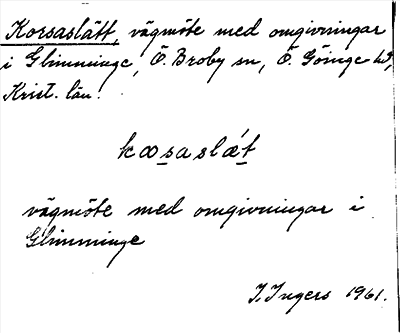 Korsaslätt, vägmöte med omgivningar
i Glimminge, Ö. Broby sn, Ö. Göinge hd,
Krist. län.
kɷsaslǽt
vägmöte med omgivningar i
Glimminge
I. Ingers 1961.